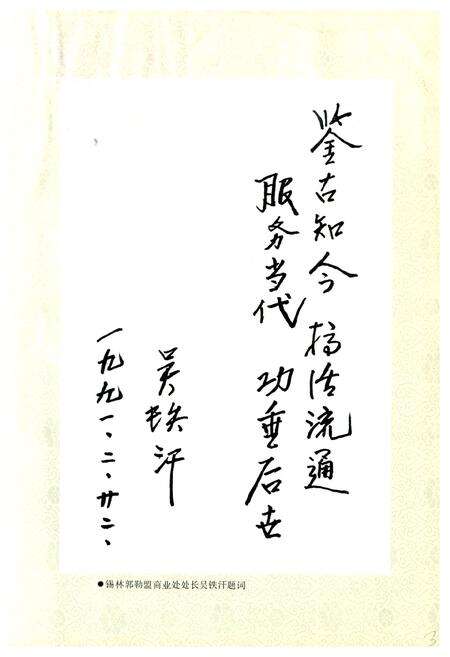 鉴古知今 搞活流通
服务当代 功垂后世
吴铁汗
一九九一、二、廿二、
●锡林郭勒盟商业处处长吴铁汗题词
3